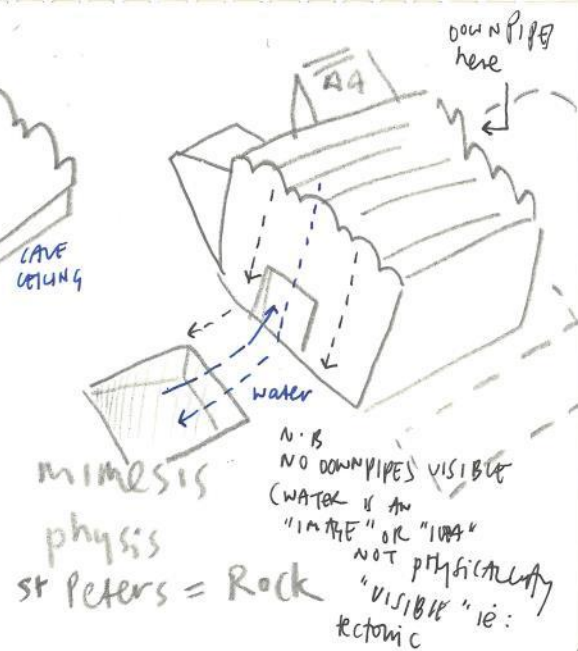 DOWNPIPE
here
A4
CAVE
CEILING
water
N.B
NO DOWNPIPES VISIBLE
(WATER IS AN
"IMAGE" OR "IDEA"
NOT PHYSICALLY
"VISIBLE" ie:
tectonic
mimesis
physis
st Peters = Rock